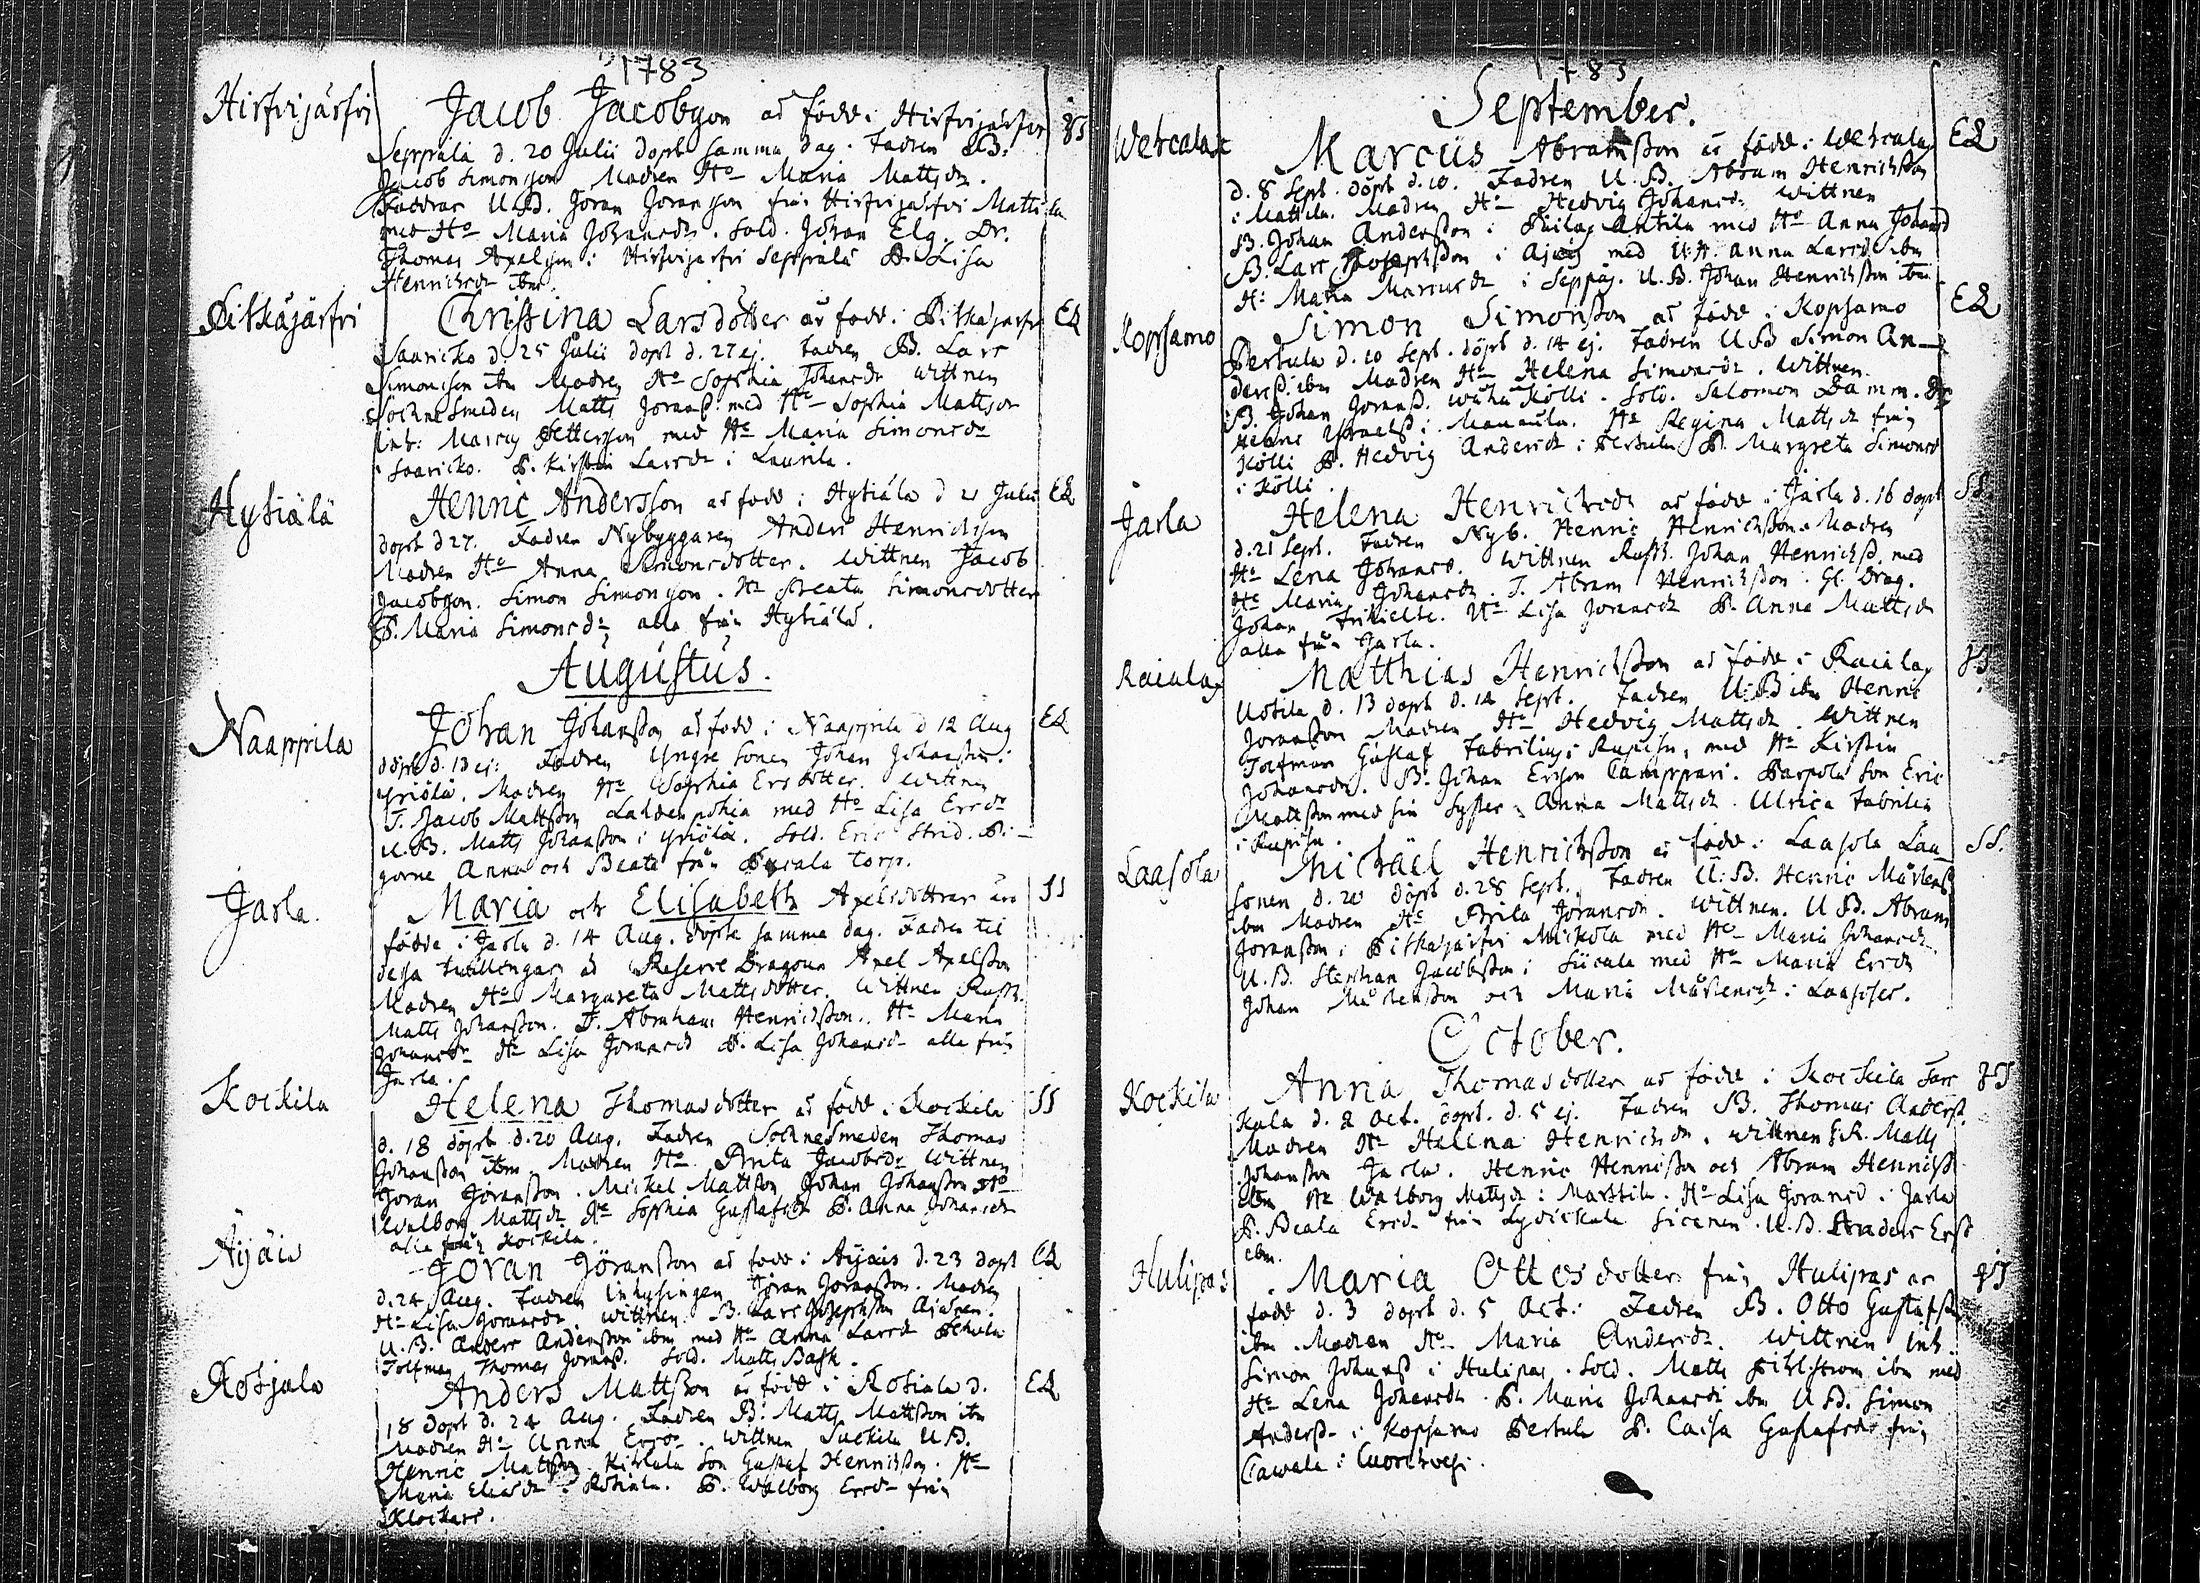 1783
Hirfvijärfvi
Jacob Jacobsson är född i Hirfvijärfvi JS
Seppälä d. 20 Julii döpt samma dag. Fadren B:
Jacob Simonsson Madren Ho Maria Mattsdr.
Faddrar U.B. Jöran Göransson från Hirfvijärfvi Mattila
med Ho Maria Johansdr. Sold. Johan Elg. Dr.
Thomas Axelsson i Hirfvijarfvi Seppälä P. Lisa
Henricsdr ibm.
Pitkäjärfvi
Christina Larsdotter är född i Pitkäjärfvi EL
Saaricko d. 25 Julii döpt d. 27 ej. Fadren B. Lars
Simonsson ibm Madren Ho Sophia Johansdr Wittnen
Sockne Smeden Matts Joranss. med Ho Sophia Mattsdr
Inh: Marcus Pettersson med Ho Maria Simonsdr
i Saaricko. P. Kirstin Larsdr i Laurila.
Hytiälä
Henric Andersson är född i Hytiälä d 21 Julii EL
döpt d 27. Fadren Nybyggaren Anders Henricsson
Madren Ho Anna Simonsdotter. Wittnen Jacob
Jacobsson. Simon Simonsson. Ho Beata Simonsdotter
P. Maria Simonsdr alla från Hytiälä.
Augustus.
Naappila
Johan Johansson är född i Naappila d 12 Aug EL
döpt d. 13 ej. Fadren Yngre Sonen Johan Johansson i
Yriölä. Madren Ho Sophia Ersdotter. Wittnen
T. Jacob Mattsson Lahdenpohia med Ho Lisa Ersdr
U.B. Matts Johansson i Yriölä. Sold. Eric Strid. Pi-
gorne Anna och Beata från torp.
Jarla.
Maria och Elisabeth Axelsdöttrar äro SS
födde i Jarla d. 14 Aug. döpte samma dag. Fadren til
dessa tvillingar är Reserve Dragoun Axel Axelsson
Madren Ho Margareta Mattsdotter. Wittnen Rusth.
Matts Johansson. T. Abraham Henricsson. Ho Maria
Johansdr Ho Lisa Joransdr P. Lisa Johansdr alla från
Jarla.
Kockila
Helena Thomasdotter är född i Kockila SS
d. 18 döpt d. 20 Aug. Fadren Sockne Smeden Thomas
Johansson ibm. Madren Ho Brita Jacobsdr Wittnen
Joran Joransson. Mickel Mattsson Johan Johansson Ho
Walborg Mattsdr Ho Sophia Gustafsdr P. Anna Johansdr
alla från Kockila.
Äijäis
Jöran Jöransson är född i Äijäis d. 23 döpt EL
d. 24 Aug. Fadren Inhysingen Jöran Joransson. Madren
Ho Lisa Joransdr. Wittnen. B. Lars Josephsson Aiainen.
U.B. Anders Andersson ibm med Ho Anna Larsdr
Tolfman Thomas Jöranss. Sold. Matts Bask.
Rosjala
Anders Mattsson är född i Rosiala d. EL
18 döpt d. 24 Aug. Fadren B: Matts Mattsson ibm
Madren Ho Anna Ersdr. Wittnen U.B.
Henric Mattsson. Son Gustaf Henricsson. Ho
Maria Eliasdr i Rosiala. P. Walborg Ersdr från
Klockars.
1783
September.
Wehcalax
Marcus Abramsson är född i Wehcalax EL
d. 8 Sept. döpt d. 10. Fadren U.B. Abram Henricsson
i Mattila. Madren Ho Hedvig Johansdr Wittnen
B. Johan Andersson i Antila med Ho Anna Johansd
B. Lars Josephsson i Ajais med U.H. Anna Larsdr ibm
H: Maria Marcusdr i Seppäl. U.B. Johan Henricsson ibm
Kopsamo
Simon Simonsson är född i Kopsamo EL
Pertula d. 10 Sept. döpt d. 14 ej. Fadren U B Simon An-
derss. ibm Madren Ho Helena Simonsdr. Wittnen.
B. Johan Jöranss. Wähä Kölli. Sold. Salomon Damm. Dr
i Ho Regina Mattsdr från
Kölli P. Hedvig Andersdr i Pertula P. Margreta Simonsd
i Kölli.
Jarla
Helena Henricsdr är född i Jarla d. 16 döpt SS.
d. 21 Sept. Fadren Nyb. Henric Henricsson. Madren
Ho Lena Johansd. Wittnen Rusth. Johan Henricss. med
Ho Maria Johansdr. T. Abram Henricsson. Gl. Drag.
Johan Ho Lisa Joransdr P. Anna Mattsdr
alla från Jarla.
Raialax
Matthias Henricsson är född i Raialax JS
Uotila d. 13 döpt d. 14 Sept. Fadren U:B ibm Henric
Joransson Madren Ho Hedvig Mattsdr. Wittnen
Tolfman Gustaf Fabrilius i Rupisu, med Ho Kirstin
Johansdr. B. Johan Ersson Camppari. Parpola Son Eric
Mattsson med sin Syster Anna Mattsdr. Ulrica Fabrilia
i Rupisu.
Laasola
Michaël Henricsson är född i Laasola Lau- SS.
sonen d. 20 döpt d. 28 Sept. Fadren U:B. Henric Mårtenss
ibm Madren Ho Brita Joransdr. Wittnen. U B. Abram
Joransson i Pitkajärfvi Mickola med Ho Maria Johansdr.
U.B. Stephan Jacobsson i Siicala med Ho Maria Ersdr
Johan Mårtensson och Maria Mårtensdr i
October.
Kockila
Anna Thomasdotter är född i Kockila JS
Kula d. 2 Oct. döpt. d. 5 ej. Fadren B. Thomas Anderss.
Madren Ho Helena Henricsdr. Wittnen Matts
Johansson Jarla. Henric Henricsson och Abram Henricss
ibm Ho Walborg Mattsdr i Marttila. Ho Lisa Joransd. i Jarla
P. Beata Ersdr från U.B. Anders Erss
ibm.
Hulipas
Maria Ottosdotter från Hulipas är JS
född d. 3 döpt d. 5 Oct: Fadren B. Otto Gustafsson
ibm. Madren Ho Maria Andersdr. Wittnen Inh.
Simon Johanss i Hulipas. Sold. Matts ibm med
Ho Lena Johansdr. P. Maria Johansdr ibm U.B. Simon
Anderss- i Kopsamo Pertula P. Caisa Gustafsdr från
Cawala i Cuorehvesi.